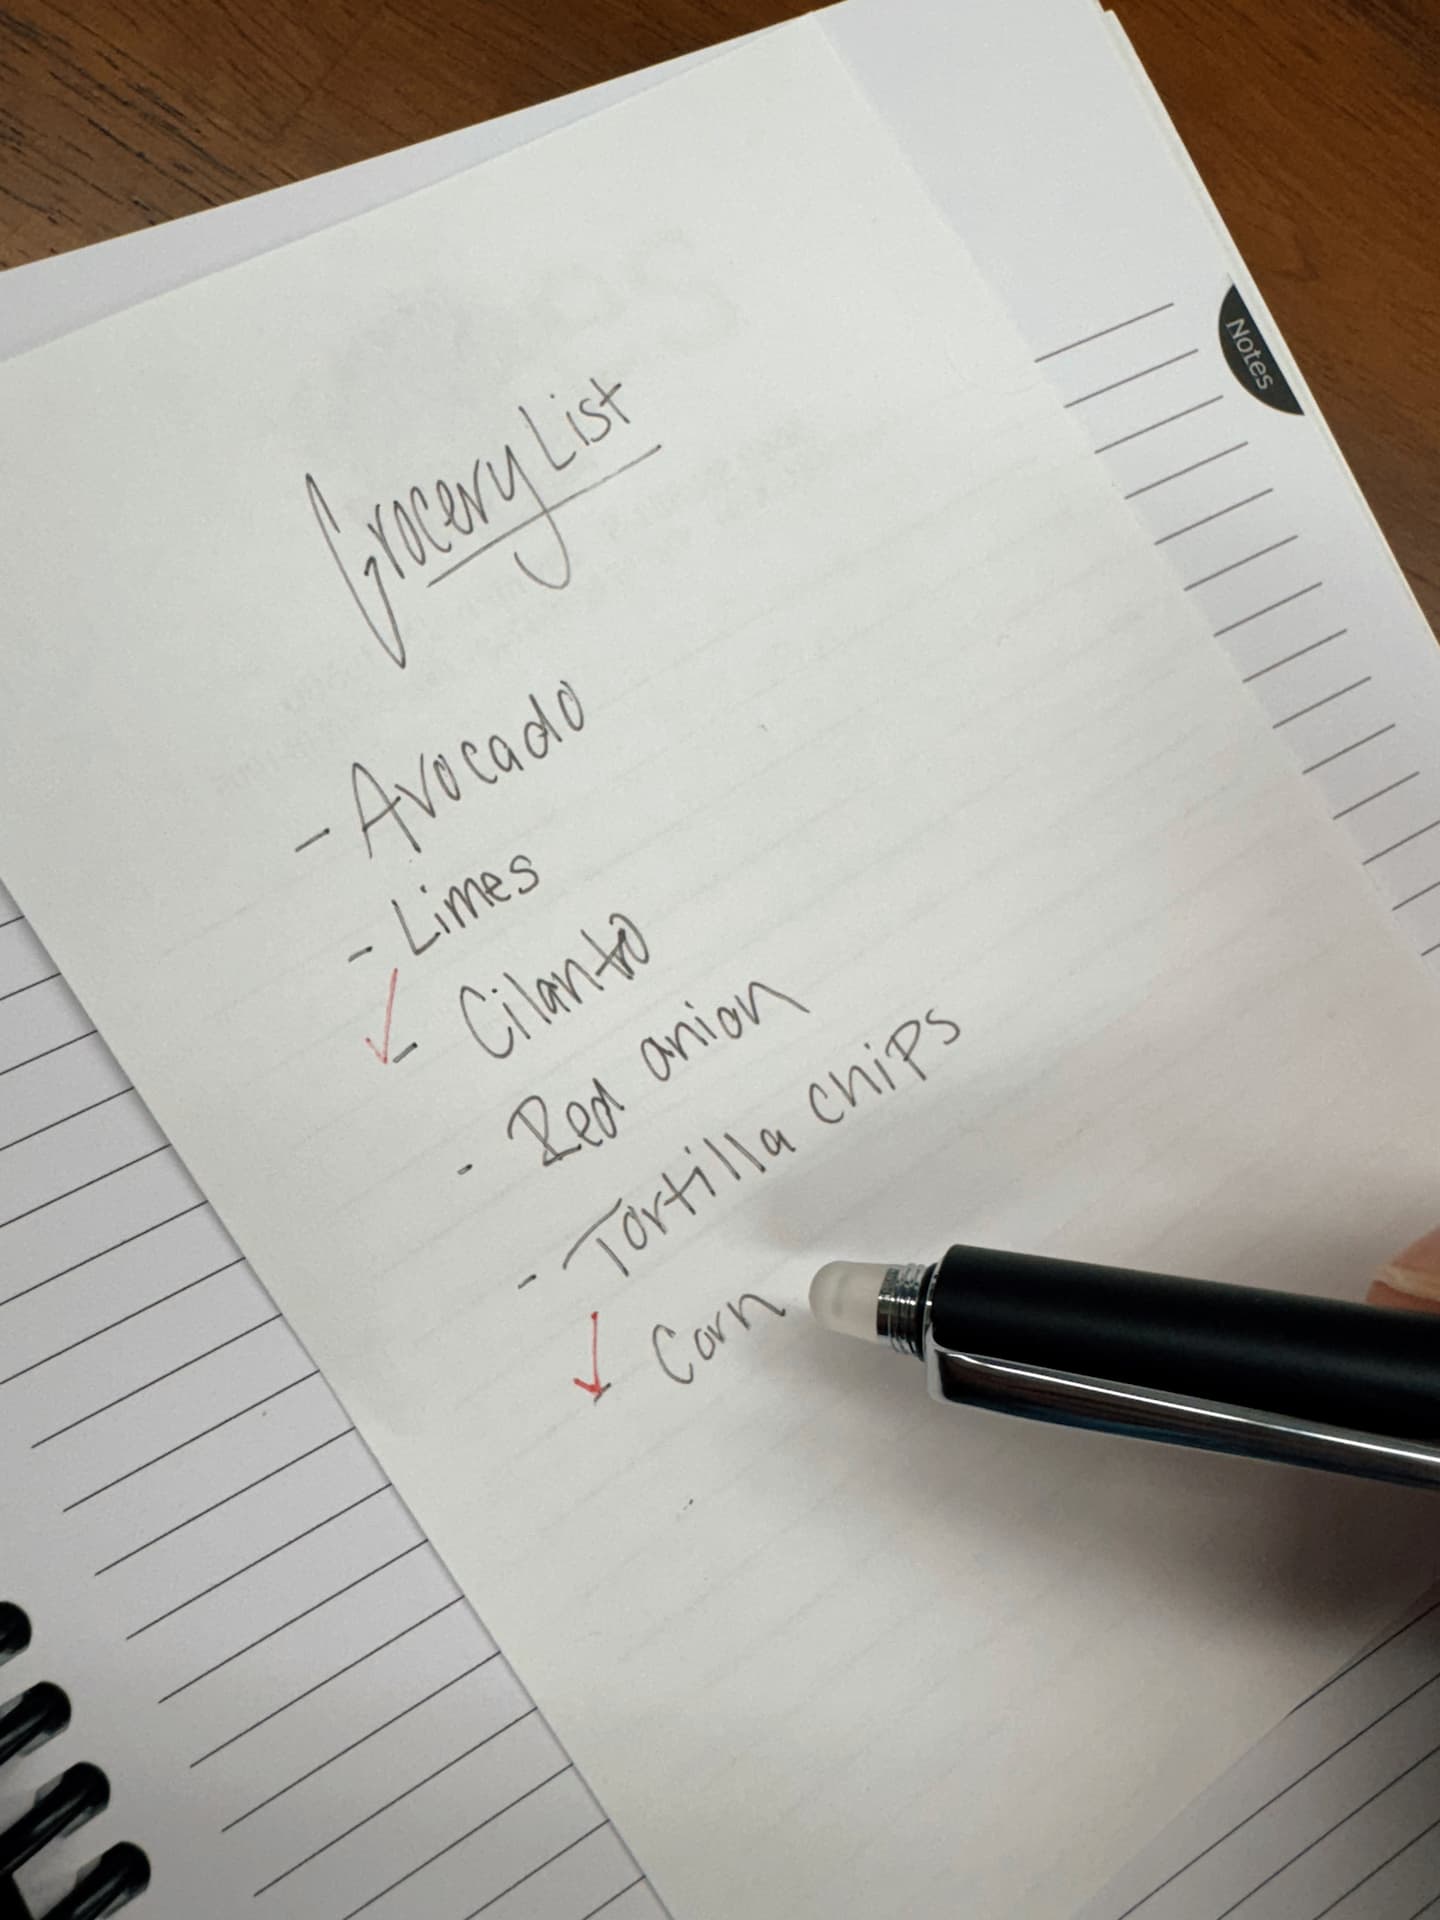 Grocery List
- Avocado
- Limes
- Cilantro
- Red onion
- Tortilla chips
- Corn
Notes